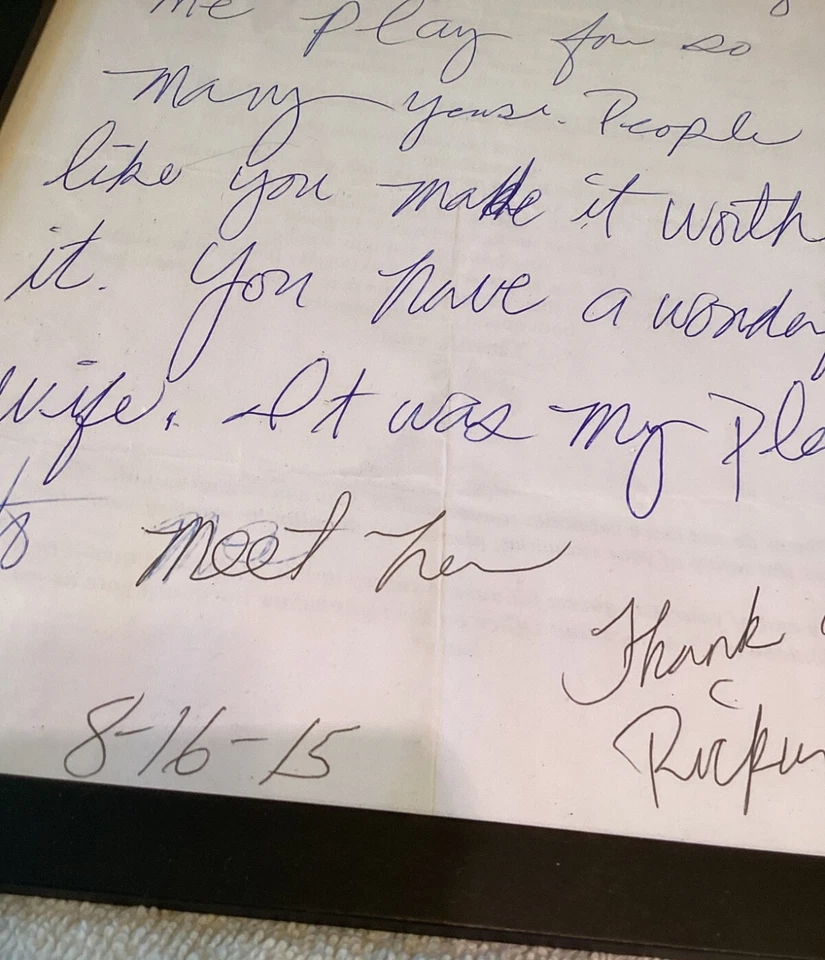 me play for so
many years. People
like you make it worth
it. You have a wonder
wife. It was my Ple
to meet her
Thank
8-16-15